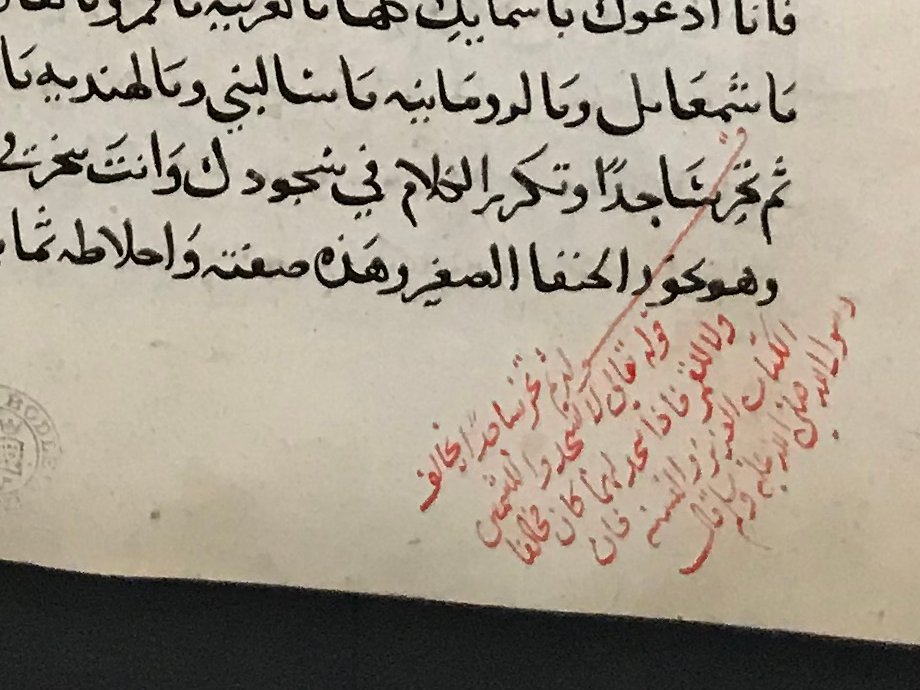 فانا ادعوك باسمايك كلها بالعربيه يا قمر وبالفا
يا شمعاىل وبالرومانيه يا سالىني وبالهنديه يا
ثم تخر ساجدًا وتكرير الكلام في سجودك وَانتَ تبخر في
وهو بخور الحنفا الصغير وهذه صفته وَاخلاطه ثما
قوله ثم تخر ساجدًا يخالف
قوله تعالى لا تسجدوا للشمس
ولا للقمر فاذا سجد لهما كان مخالفا
الكتاب العزيز والسنه فان
رسول الله صلى الله عليه وسلم قال
BODLE